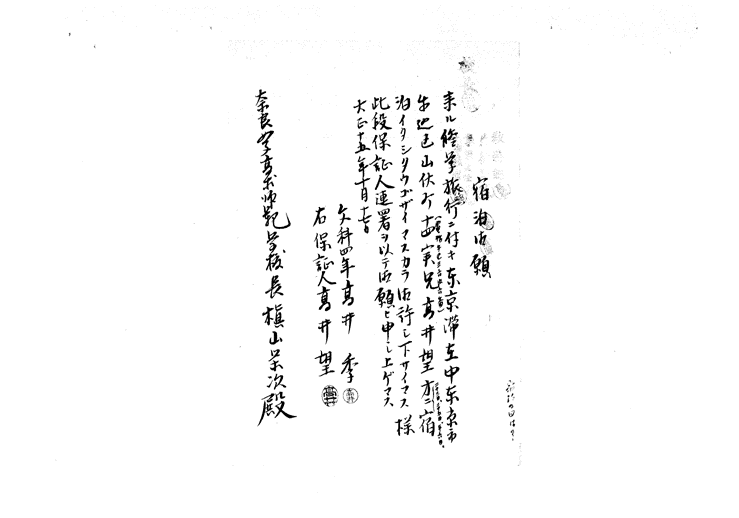 宿泊御願
来ル修学旅行ニ付キ東京滞在中東京市
牛込区山伏町
実兄高井望方ニ宿
泊イタシタウゴザイマスカラ御許シ下サイマス様
此段保証人連署ヲ以テ御願ヒ申シ上ゲマス
大正十五年十月十七日
文科四年高井 季
右保証人高井望
奈良女子高等師範学校長槇山栄次殿